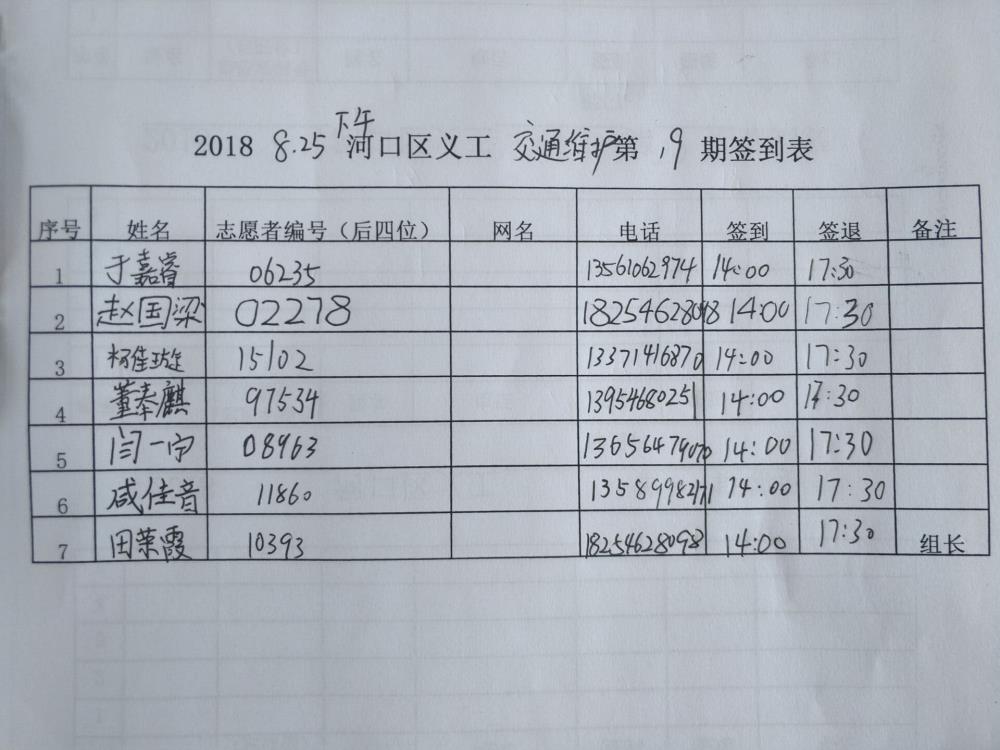 下午
2018 8.25 河口区义工 交通维护第 19 期签到表
序号 姓名 志愿者编号（后四位） 网名 电话 签到 签退 备注
1 于嘉睿 06235 13561062974 14:00 17:30
2 赵国梁 02278 18254628098 14:00 17:30
3 杨佳璇 15102 13371416870 14:00 17:30
4 董奉麒 97534 13954680251 14:00 17:30
5 闫一宁 08963 13656479070 14:00 17:30
6 咸佳音 11860 13589998271 14:00 17:30
7 田荣霞 10393 18254628098 14:00 17:30 组长